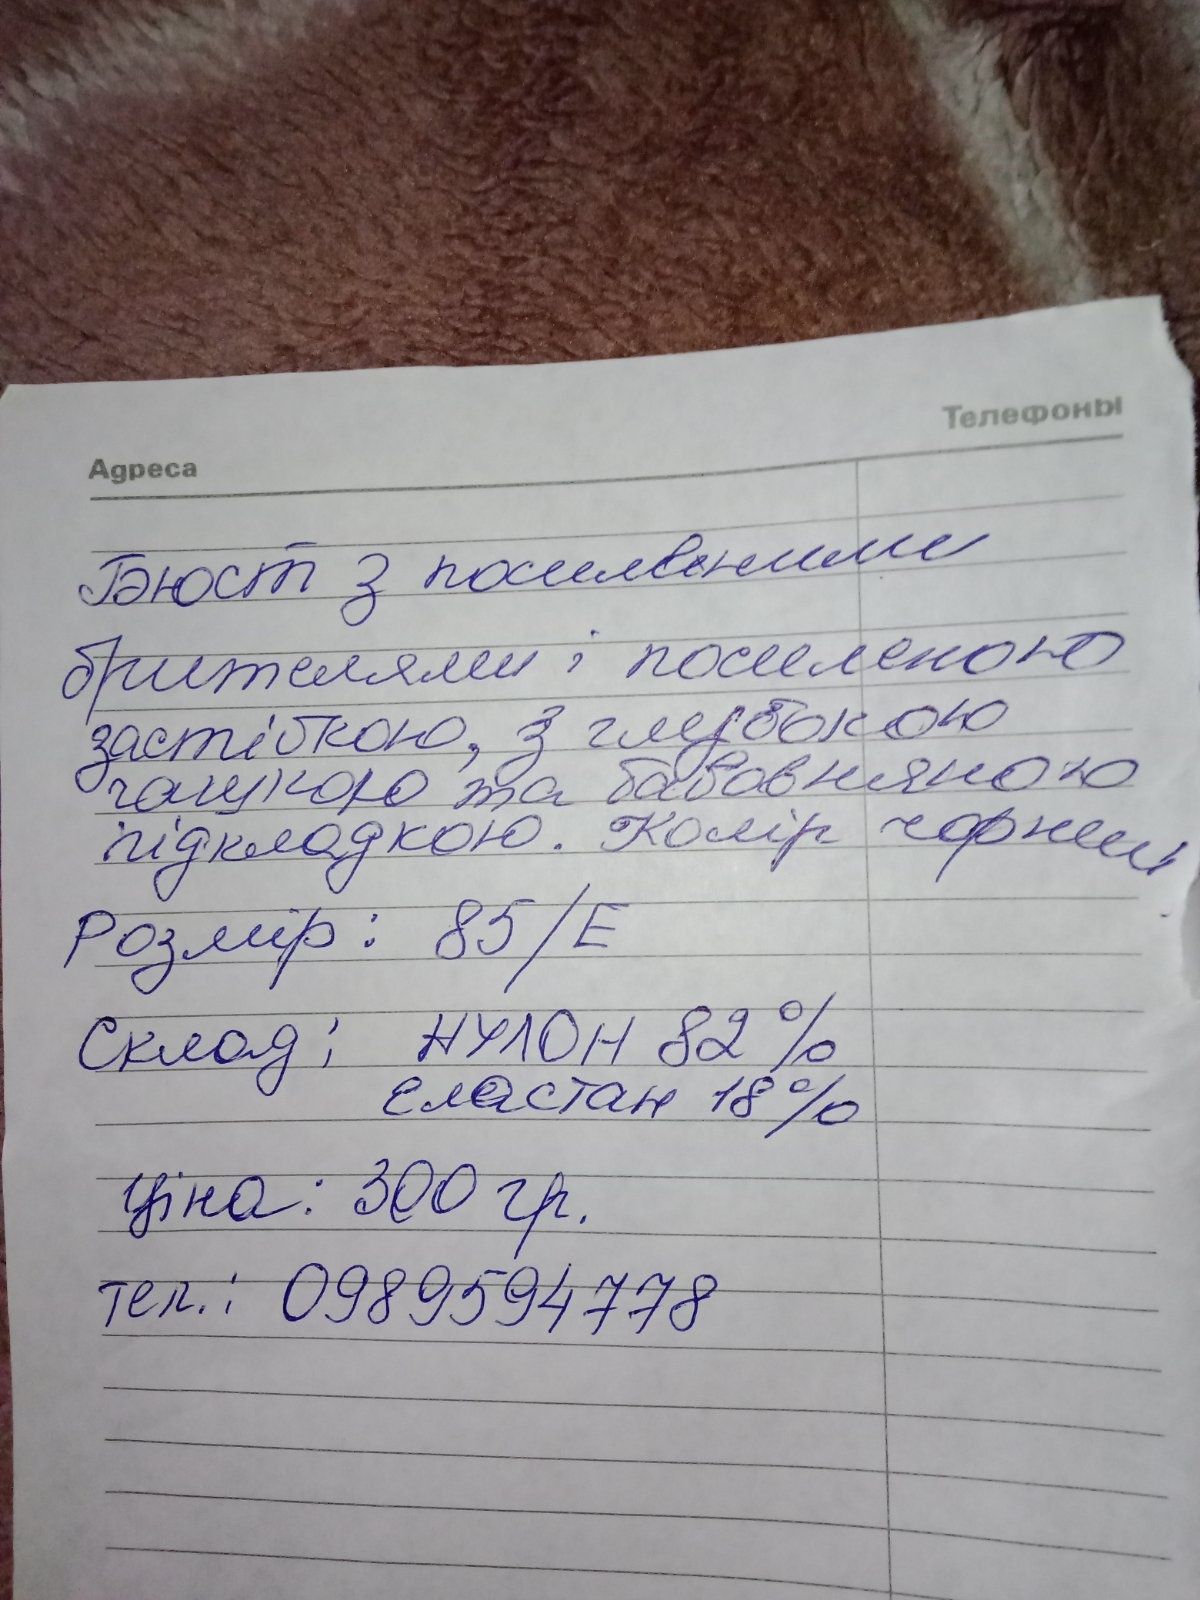 Телефоны
Адреса
Бюст з посиленими
брителями і посиленою
застібкою, з глубокою
чашкою та бавовняною
підкладкою. Колір чорний
Розмір: 85/Е
Склад: НУЛОН 82%
еластан 18%
Ціна: 300 гр.
тел.: 0989594778